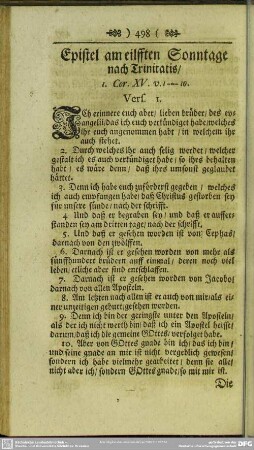 ) 498 (
Epistel am eilfften Sonntage
nach Trinitatis/
1. Cor. XV. v. 1---10.
Vers. 1.
Ich erinnere euch aber/ lieben brüder/ des ev-
angelii/das ich euch verkündiget habe/welches
ihr euch angenommen habt/ in welchem ihr
auch stehet.
2. Durch welches ihr auch selig werdet/ welcher
gestalt ich es auch verkündiget habe/ so ihrs behalten
habt/ es wäre denn/ daß ihrs umsonst geglaubet
hättet.
3. Denn ich habe euch zuförderst gegeben/ welches
ich auch empfangen habe/ daß Christus gestorben sey
für unsere sünde/ nach der schrifft.
4. Und daß er begraben sey/ und daß er aufser-
standen sey am dritten tage/ nach der schrifft.
5. Und daß er gesehen worden ist von Cephas/
darnach von den zwölffen.
6. Darnach ist er gesehen worden von mehr als
fünffhundert brüdern auff einmal/ deren noch viel
leben/ etliche aber sind entschlaffen.
7. Darnach ist er gesehen worden von Jacobo/
darnach von allen Aposteln.
8. Am letzten nach allen ist er auch von mir/als ei-
ner unzeitigen geburt/gesehen worden.
9. Denn ich bin der geringste unter den Aposteln/
als der ich nicht werth bin/ daß ich ein Apostel heisse/
darum/daß ich die gemeine GOttes/ verfolget habe.
10. Aber von GOttes gnade bin ich/ das ich bin/
und seine gnade an mir ist nicht vergeblich gewesen/
sondern ich habe vielmehr gearbeitet/ denn sie alle/
nicht aber ich/ sondern GOttes gnade/ so mit mir ist.
Die